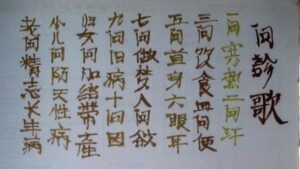 问診歌
一问寒热二问汗
三问饮食四问便
五问首身六眼耳
七问做梦八问欲
九问旧病十问因
妇女问加经带産
小儿问防天性病
老问精志长年病